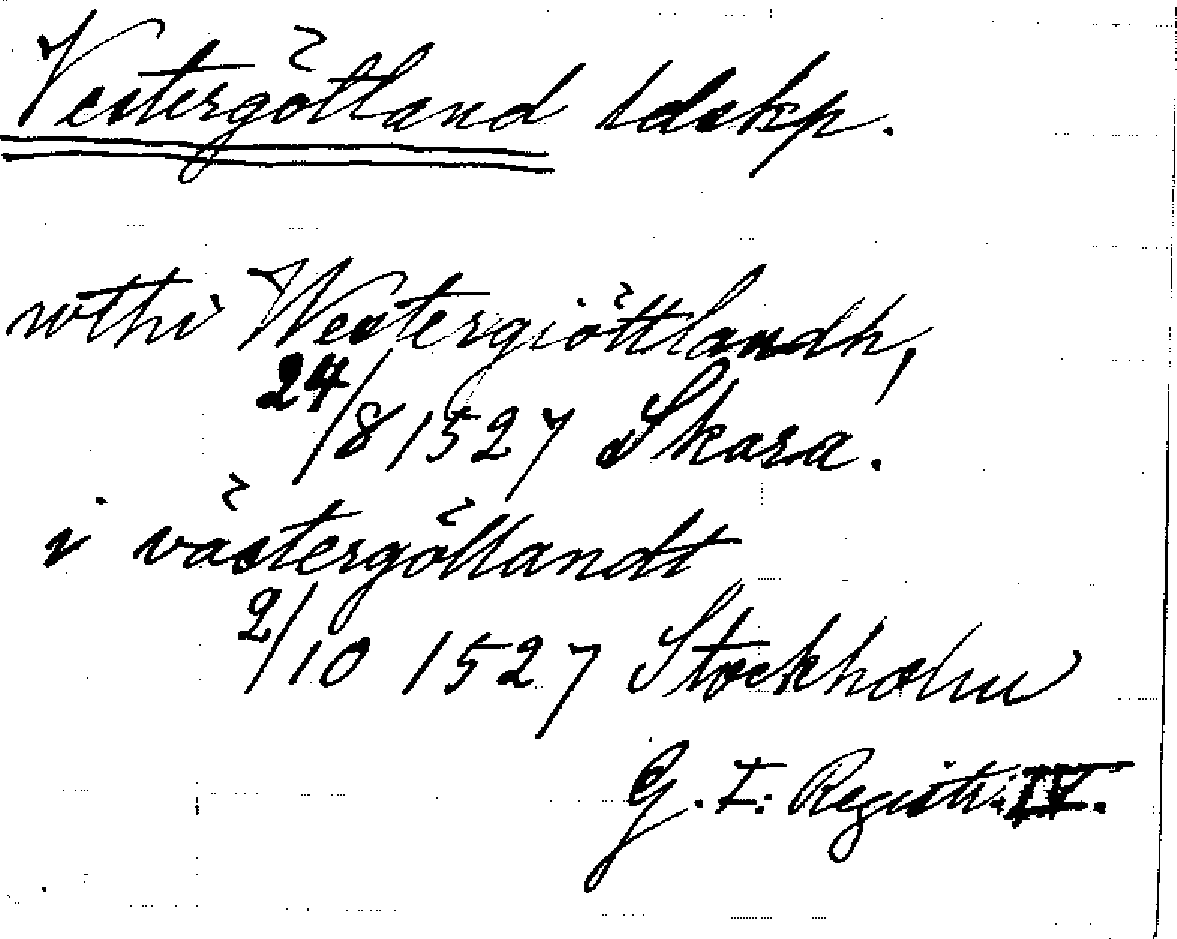 Vestergötland ldskp.
wthi Westergiöttlandh,
24/8 1527 Skara.
i västergöllandt
2/10 1527 Stockholm
G. I: Registr. IV.